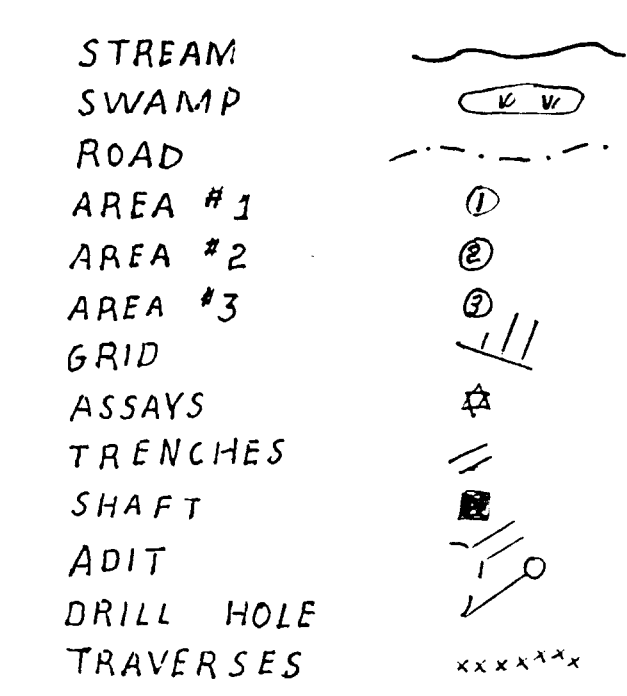 STREAM
SWAMP
ROAD
AREA #1 1
AREA #2 2
AREA #3 3
GRID
ASSAYS
TRENCHES
SHAFT
ADIT
DRILL HOLE
TRAVERSES